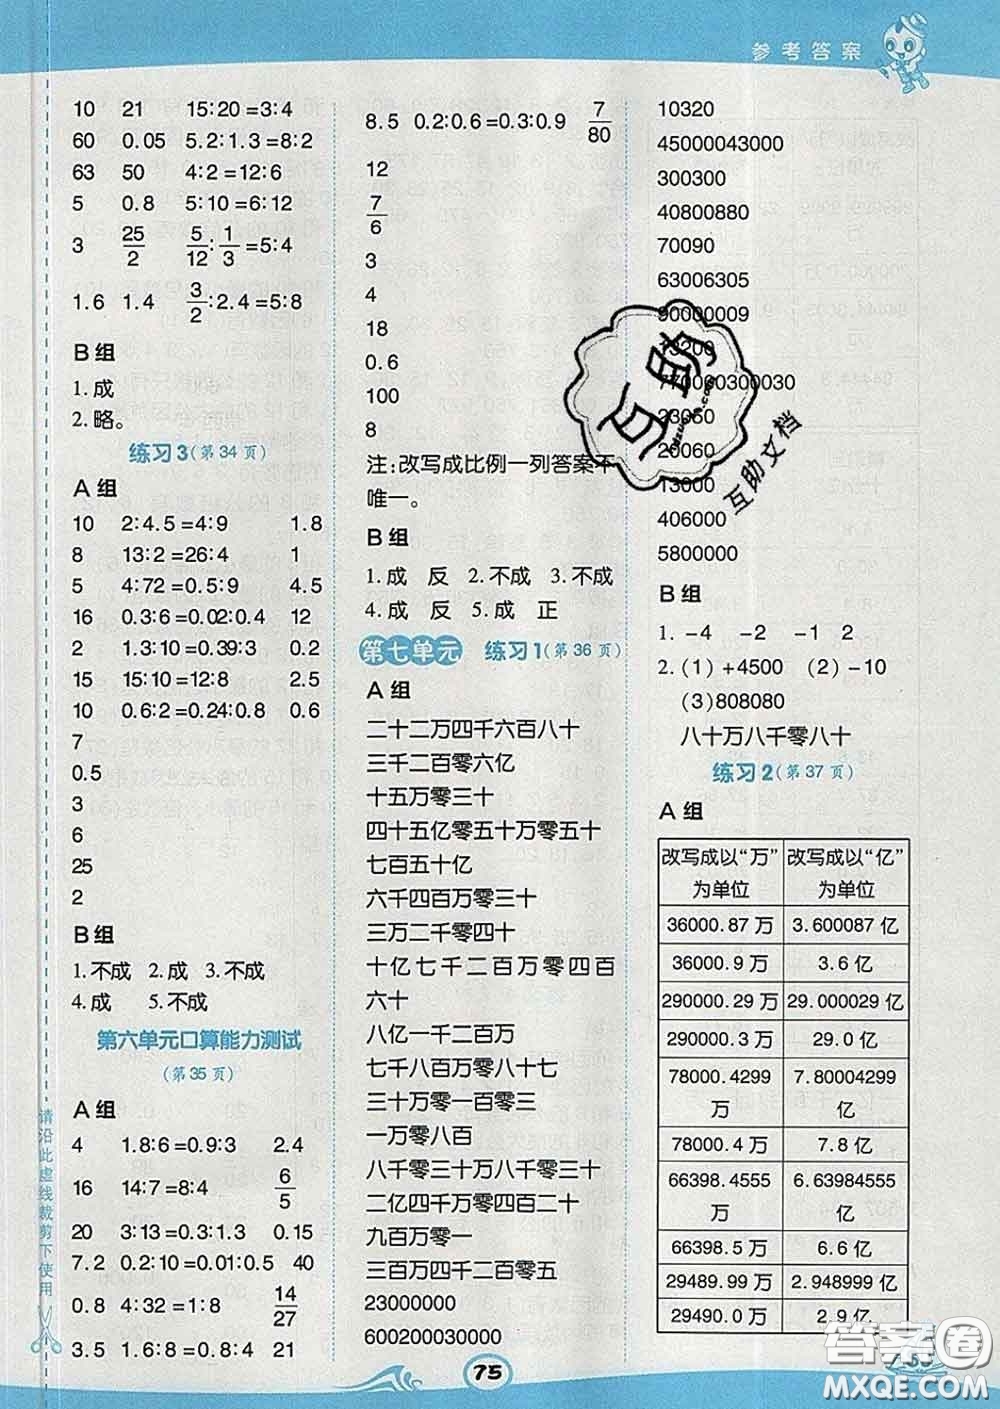 参考答案
10 21 15:20=3:4
60 0.05 5.2:1.3=8:2
63 50 4:2=12:6
5 0.8 5:10=6:12
3 25/2 5/12:1/3=5:4
1.6 1.4 3/2:2.4=5:8
B 组
1.成
2.略。
练习3(第34页)
A 组
10 2:4.5=4:9 1.8
8 13:2=26:4 1
5 4:72=0.5:9 4.5
16 0.3:6=0.02:0.4 12
2 1.3:10=0.39:3 0.2
15 15:10=12:8 2.5
10 0.6:2=0.24:0.8 0.6
7
0.5
3
6
25
2
B 组
1.不成 2.成 3.不成
4.成 5.不成
第六单元口算能力测试
(第35页)
A 组
4 1.8:6=0.9:3 2.4
16 14:7=8:4 6/5
20 3:13=0.3:1.3 0.15
7.2 0.2:10=0.01:0.5 40
0.8 4:32=1:8 14/27
3.5 1.6:8=0.8:4 21
请沿此虚线裁剪下使用
8.5 0.2:0.6=0.3:0.9 7/80
12
7/6
3
4
18
0.6
100
8
注:改写成比例一列答案不
唯一。
B 组
1.成 反 2.不成 3.不成
4.成 反 5.成 正
第七单元 练习1(第36页)
A 组
二十二万四千六百八十
三千二百零六亿
十五万零三十
四十五亿零五十万零五十
七百五十亿
六千四百万零三十
三万二千零四十
十亿七千二百万零四百
六十
八亿一千二百万
七千八百万零八十七
三十万零一百零三
一万零八百
八千零三十万八千零三十
二亿四千万零四百二十
九百万零一
三百万四千二百零五
23000000
600200030000
10320
45000043000
300300
40800880
70090
63006305
90000009
13200
770000300030
23060
20060
13000
406000
5800000
B 组
1. -4 -2 -1 2
2.(1)+4500 (2)-10
(3)808080
八十万八千零八十
练习2(第37页)
A 组
改写成以“万” 改写成以“亿”
为单位 为单位
36000.87万 3.600087亿
36000.9万 3.6亿
290000.29万 29.000029亿
290000.3万 29.0亿
78000.4299 7.80004299
万 亿
78000.4万 7.8亿
66398.4555 6.63984555
万 亿
66398.5万 6.6亿
29489.99万 2.948999亿
29490.0万 2.9亿
75
互助
互助文档
答案圈
MXQE.COM